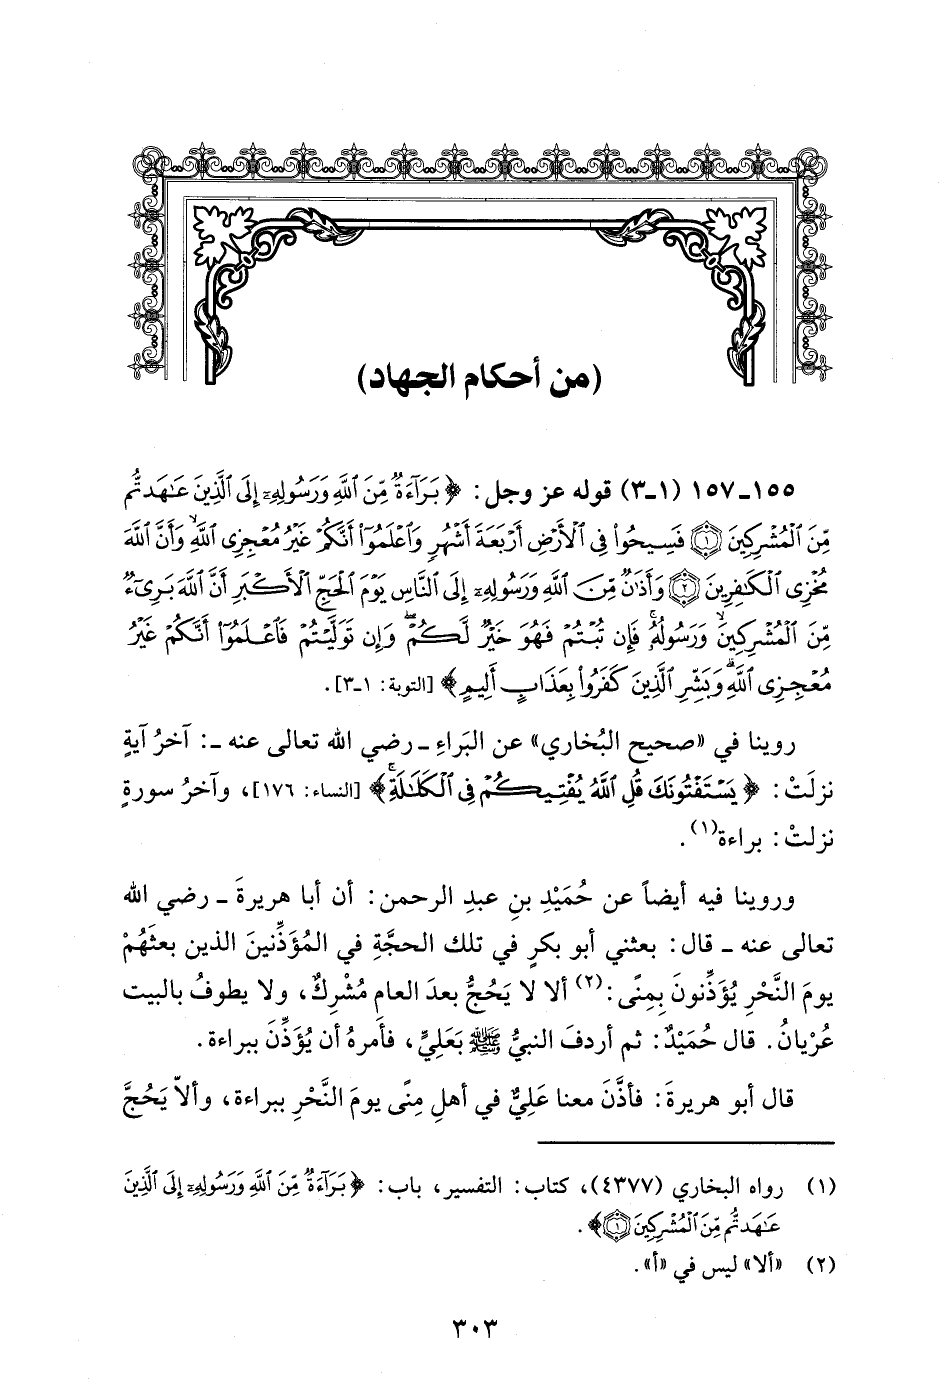 (من أحكام الجهاد)
١٥٥ـ١٥٧ (١ـ٣) قوله عز وجل: ﴿بَرَآءَةٌ مِّنَ ٱللَّهِ وَرَسُولِهِۦٓ إِلَى ٱلَّذِينَ عَٰهَدتُّم
مِّنَ ٱلْمُشْرِكِينَ ۝١ فَسِيحُوا۟ فِى ٱلْأَرْضِ أَرْبَعَةَ أَشْهُرٍ وَٱعْلَمُوٓا۟ أَنَّكُمْ غَيْرُ مُعْجِزِى ٱللَّهِ ۙ وَأَنَّ ٱللَّهَ
مُخْزِى ٱلْكَٰفِرِينَ ۝٢ وَأَذَٰنٌ مِّنَ ٱللَّهِ وَرَسُولِهِۦٓ إِلَى ٱلنَّاسِ يَوْمَ ٱلْحَجِّ ٱلْأَكْبَرِ أَنَّ ٱللَّهَ بَرِىٓءٌ
مِّنَ ٱلْمُشْرِكِينَ ۙ وَرَسُولُهُۥ ۚ فَإِن تُبْتُمْ فَهُوَ خَيْرٌ لَّكُمْ ۖ وَإِن تَوَلَّيْتُمْ فَٱعْلَمُوٓا۟ أَنَّكُمْ غَيْرُ
مُعْجِزِى ٱللَّهِ ۗ وَبَشِّرِ ٱلَّذِينَ كَفَرُوا۟ بِعَذَابٍ أَلِيمٍ﴾ [التوبة: ١ـ٣].
روينا في «صحيح البُخاري» عن البَراءِ ـ رضي الله تعالى عنه ـ: آخرُ آيةٍ
نزلَتْ: ﴿يَسْتَفْتُونَكَ قُلِ ٱللَّهُ يُفْتِيكُمْ فِى ٱلْكَلَٰلَةِ ۚ﴾ [النساء: ١٧٦]، وآخرُ سورةٍ
نزلتْ: براءة(١).
وروينا فيه أيضاً عن حُمَيْدِ بنِ عبدِ الرحمن: أن أبا هريرةَ ـ رضي الله
تعالى عنه ـ قال: بعثني أبو بكرٍ في تلك الحجَّةِ في المُؤَذِّنينَ الذين بعثَهُمْ
يومَ النَّحْرِ يُؤَذِّنونَ بِمِنًى:(٢) ألا لا يَحُجُّ بعدَ العام مُشْرِكٌ، ولا يطوفُ بالبيت
عُرْيانُ. قال حُمَيْدٌ: ثم أردفَ النبيُّ ﷺ بَعَليٍّ، فأَمرهُ أن يُؤَذِّنَ ببراءة.
قال أبو هريرةَ: فأذَّنَ معنا عَلِيٌّ في أهلِ مِنًى يومَ النَّحْرِ ببراءة، وألاّ يَحُجَّ
(١) رواه البخاري (٤٣٧٧)، كتاب: التفسير، باب: ﴿بَرَآءَةٌ مِّنَ ٱللَّهِ وَرَسُولِهِۦٓ إِلَى ٱلَّذِينَ
عَٰهَدتُّم مِّنَ ٱلْمُشْرِكِينَ ۝١﴾.
(٢) «ألا» ليس في «أ».
٣٠٣